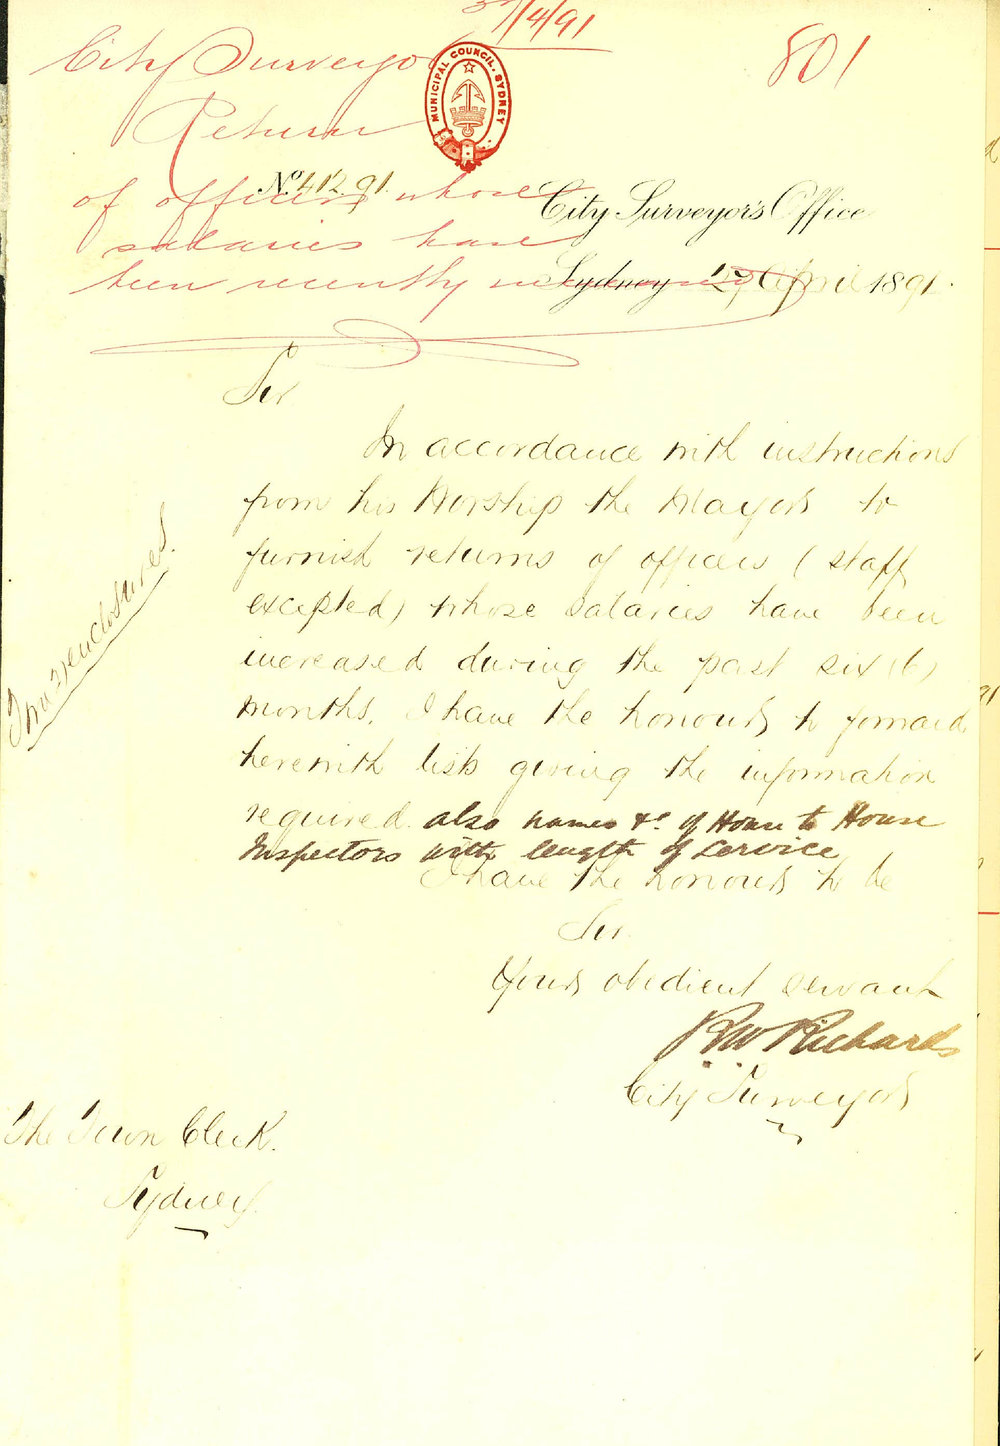 /4/91
801
City Surveyor
Return
of officers whose
salaries have
been recently increased
MUNICIPAL COUNCIL. SYDNEY
No. 412 91.
City Surveyor's Office
Sydney 29 April 1891.
Sir
In accordance with instructions
from his Worship the Mayor to
furnish returns of officers (staff
excepted) whose salaries have been
increased during the past six (6)
months, I have the honour to forward
herewith lists giving the information
required. also names &c. of House to House
Inspectors with length of service
I have the honour to be
Sir
Your obedient servant
RW Richards
City Surveyor
enclosures.
The Town Clerk.
Sydney.